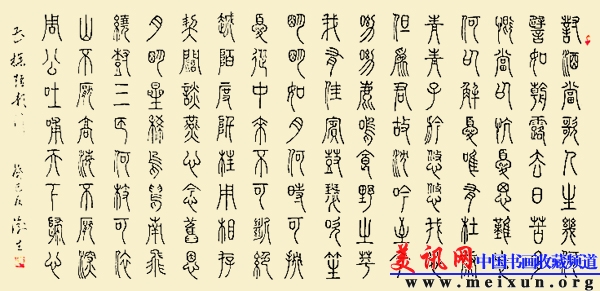 對酒當歌人生幾何
譬如朝露去日苦多
慨當以慷憂思難忘
何以解憂唯有杜康
青青子衿悠悠我心
但為君故沈吟至今
呦呦鹿鳴食野之苹
我有佳賓鼓瑟吹笙
明明如月何時可掇
憂從中來不可斷絕
越陌度阡枉用相存
契闊談燕心念舊恩
月明星稀烏鵲南飛
繞樹三匝何枝可依
山不厭高海不厭深
周公吐哺天下歸心
美讯网
中国书画收藏频道
www.meixun.org